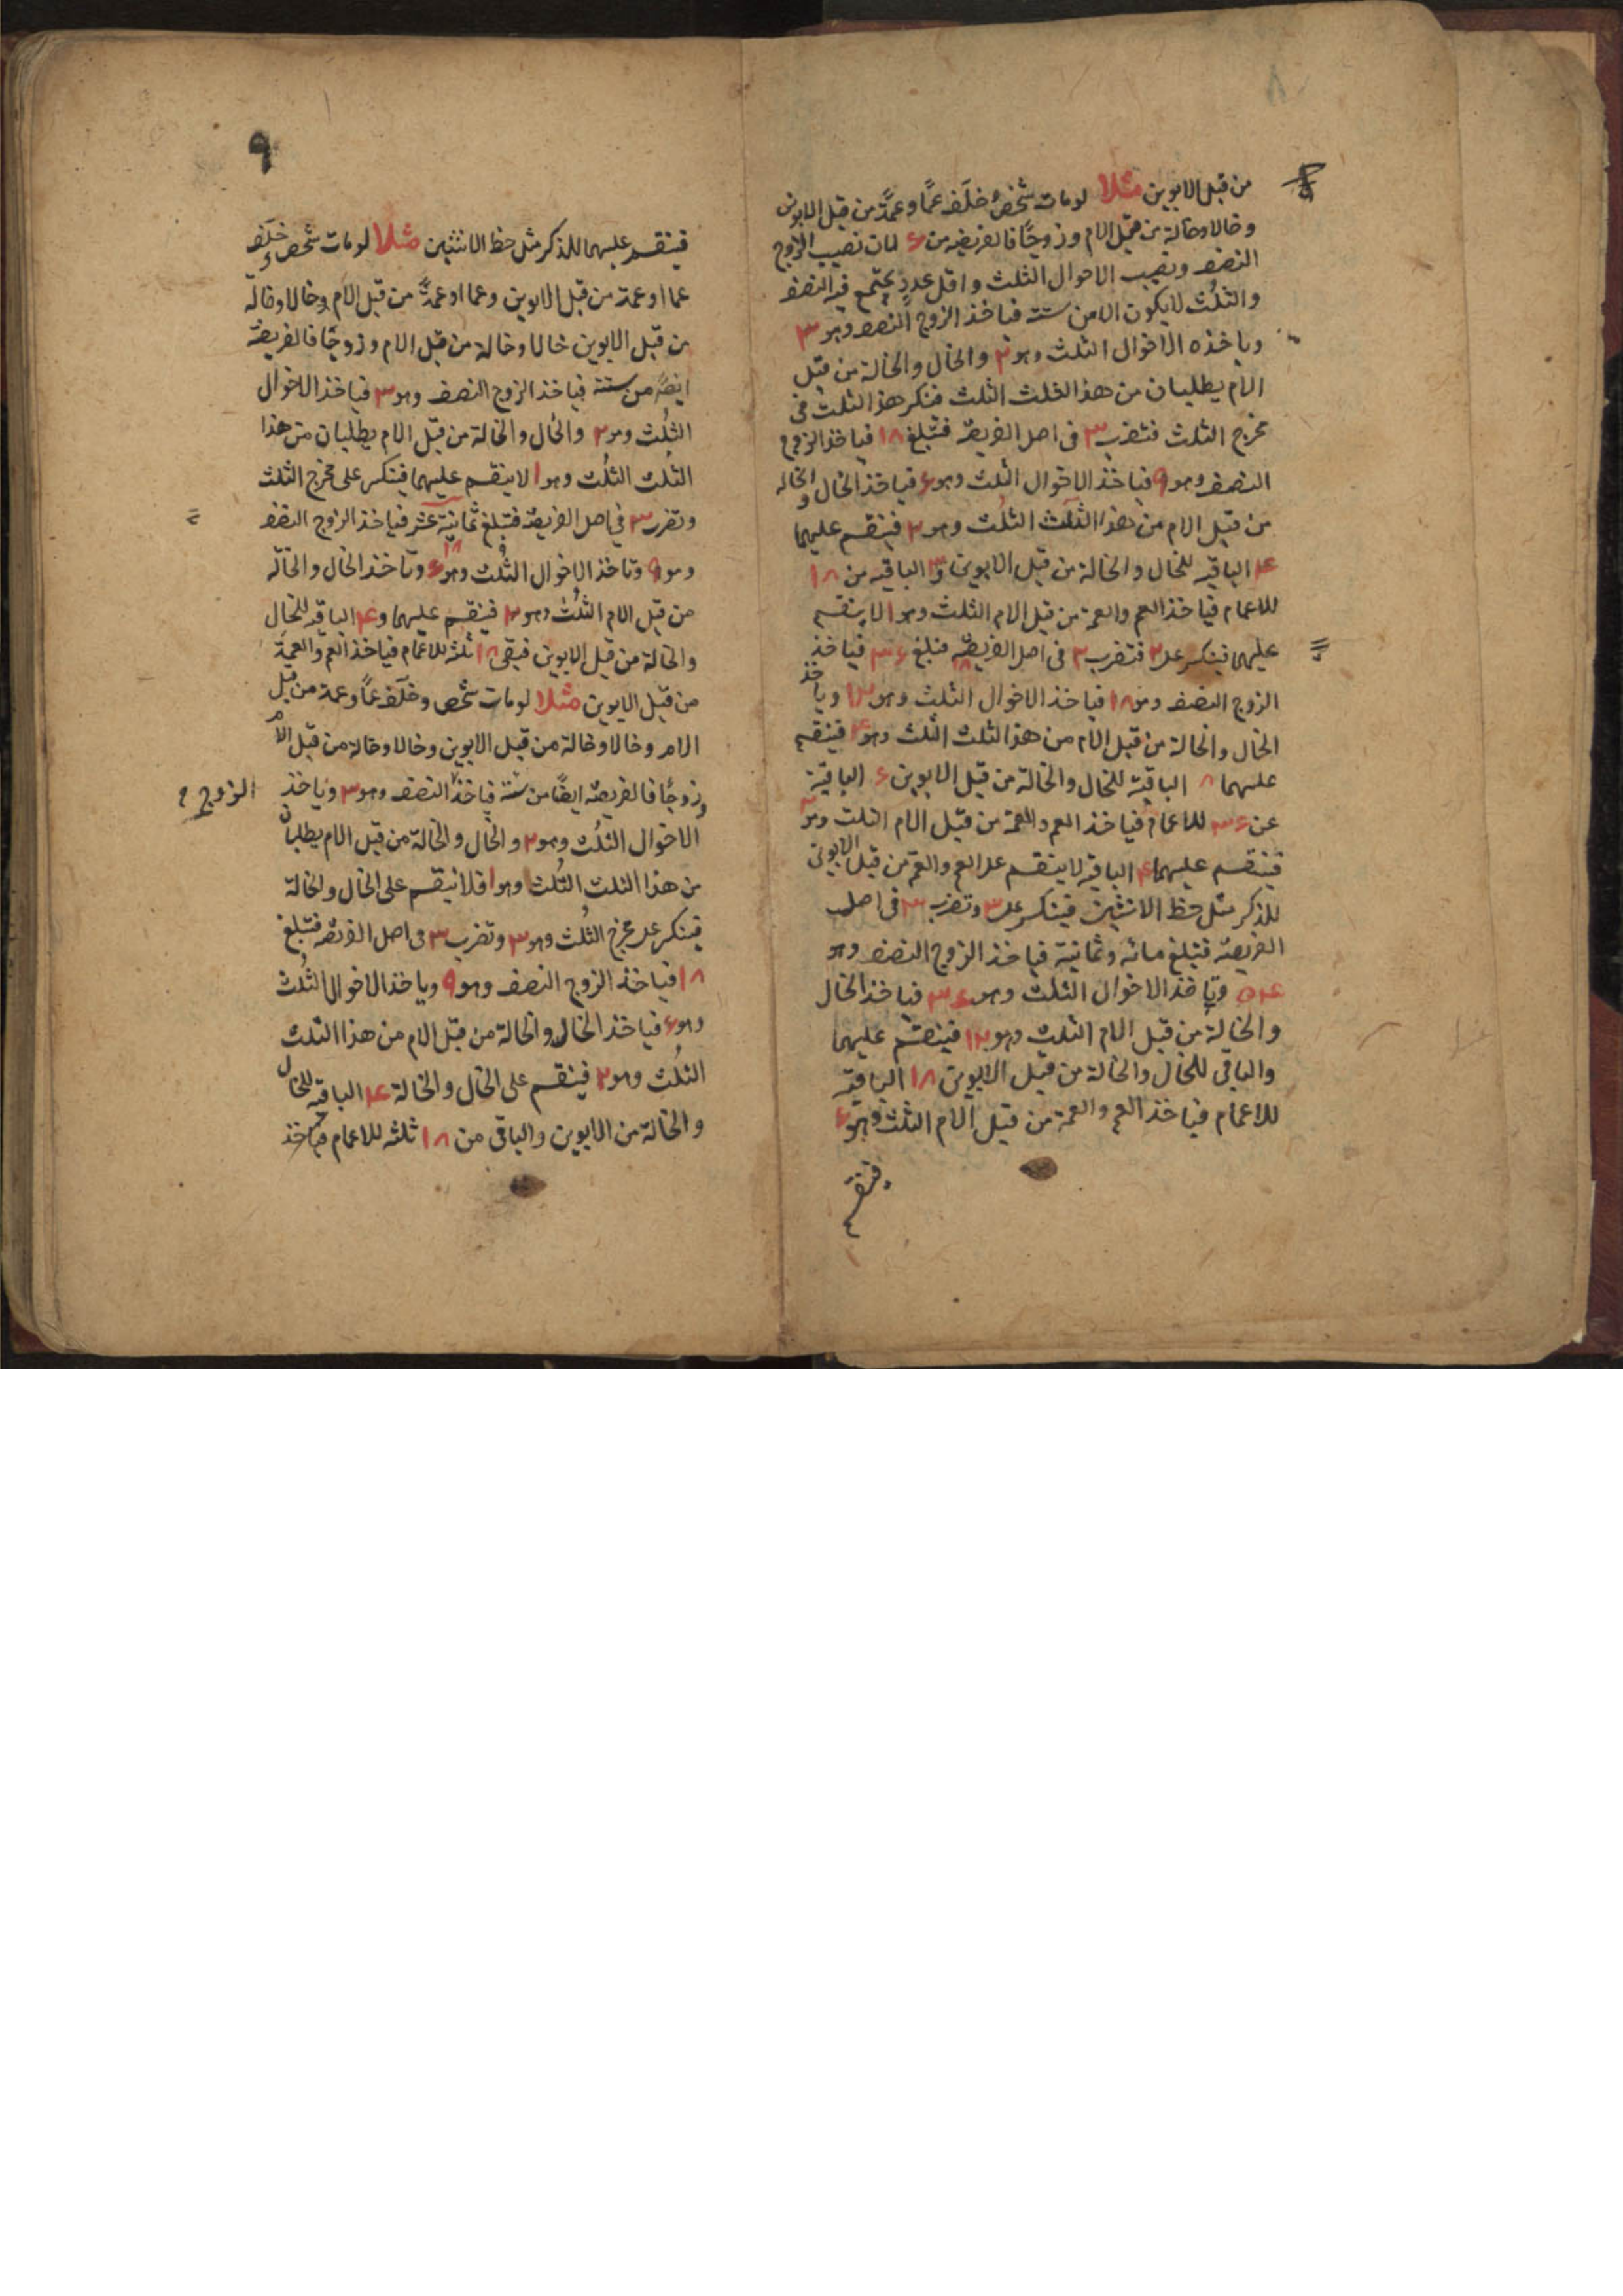 من قبل الابوين مثلا لومات شخص خلّف عمًّا وعمّة من قبل الابوين
وخالا وخالة من قبل الام وزوجًا فالفريضة من ۶ لان نصيب الزوج
النصف ونصيب الاخوال الثلث واقل عدد يجتمع فيه النصف
والثلُث لا يكون الا من ستة فياخذ الزوج النصف وهو ۳
وياخذه الاخوال الثلث وهو ۲ والخال والخالة من قبل
الام يطلبان من هذا الثلث الثلث فنكر هذا الثلث فى
مخرج الثلث فتضرب ۳ فى اصل الفريضة فتبلغ ۱۸ فياخذ الزوج
النصف وهو ۹ فياخذ الاخوال الثلث وهو ۶ فياخذ الخال والخالة
من قبل الام من هذا الثلث الثلث وهو ۲ فينقسم عليهما
۴ الباقية للخال والخالة من قبل الابوين و۳ الباقية من ۱۸
للاعمام فياخذ العم والعمة من قبل الام الثلث وهو ۱ لا ينقسم
عليهما فينكسر على ۲ فتضرب ۲ فى اصل الفريضة فتبلغ ۳۶ فياخذ
الزوج النصف وهو ۱۸ فياخذ الاخوال الثلث وهو ۱۲ وياخذ
الخال والخالة من قبل الام من هذا الثلث الثلث وهو ۴ فينقسم
عليهما ۸ الباقية للخال والخالة من قبل الابوين ۶ الباقية
عن ۳۶ للاعمام فياخذ العم والعمة من قبل الام الثلث وهو ۲
فينقسم عليهما ۴ الباقية لا ينقسم على العم والعمة من قبل الابوين
للذكر مثل حظ الانثيين فينكسر على ۳ وتضرب ۳ فى اصل
الفريضة فتبلغ مائة وثمانية فياخذ الزوج النصف وهو
۵۴ وياخذ الاخوال الثلث وهو ۳۶ فياخذ الخال
والخالة من قبل الام الثلث وهو ۱۲ فينقسم عليهما
والباقى للخال والخالة من قبل الابوين ۱۸ الباقية
للاعمام فياخذ العم والعمة من قبل الام الثلث وهو ۶
فينقسم
۹
فينقسم عليهما للذكر مثل حظ الانثيين مثلا لومات شخص وخلّف
عما اوعمة من قبل الابوين وعما اوعمةً من قبل الام وخالا وخالة
من قبل الابوين خالا وخالة من قبل الام وزوجًا فالفريضة
ايضًا من ستة فياخذ الزوج النصف وهو ۳ فياخذ الاخوال
الثلُث وهو ۲ والخال والخالة من قبل الام يطلبان من هذا
الثلث الثلُث وهو ۱ لا ينقسم عليهما فينكسر على مخرج الثلث
وتضرب ۳ فى اصل الفريضة فتبلغ ثمانية عشر فياخذ الزوج النصف
وهو ۹ وتاخذ الاخوال الثلُث وهو ۶ وتاخذ الخال والخالة
من قبل الام الثلُث وهو ۲ فينقسم عليهما و۴ الباقية للخال
والخالة من قبل الابوين فبقى ۱۸ ثلثه للاعمام فياخذ العم والعمة
من قبل الابوين مثلا لومات شخص وخلّف عمّا وعمة من قبل
الام وخالا وخالة من قبل الابوين وخالا وخالة من قبل الام
وزوجًا فالفريضة ايضًا من ستة فياخذ النصف وهو ۳ وياخذ
الزوج
الاخوال الثلُث وهو ۲ والخال والخالة من قبل الام يطلبان
من هذا الثلث الثلُث وهو ۱ فلا ينقسم على الخال والخالة
فينكسر على مخرج الثلُث وهو ۳ وتضرب ۳ فى اصل الفريضة فتبلغ
۱۸ فياخذ الزوج النصف وهو ۹ وياخذ الاخوال الثلُث
وهو ۶ فياخذ الخال والخالة من قبل الام من هذا الثلث
الثلُث وهو ۲ فينقسم على الخال والخالة ۴ الباقية للخال
والخالة من الابوين والباقى من ۱۸ ثلثه للاعمام فياخذ